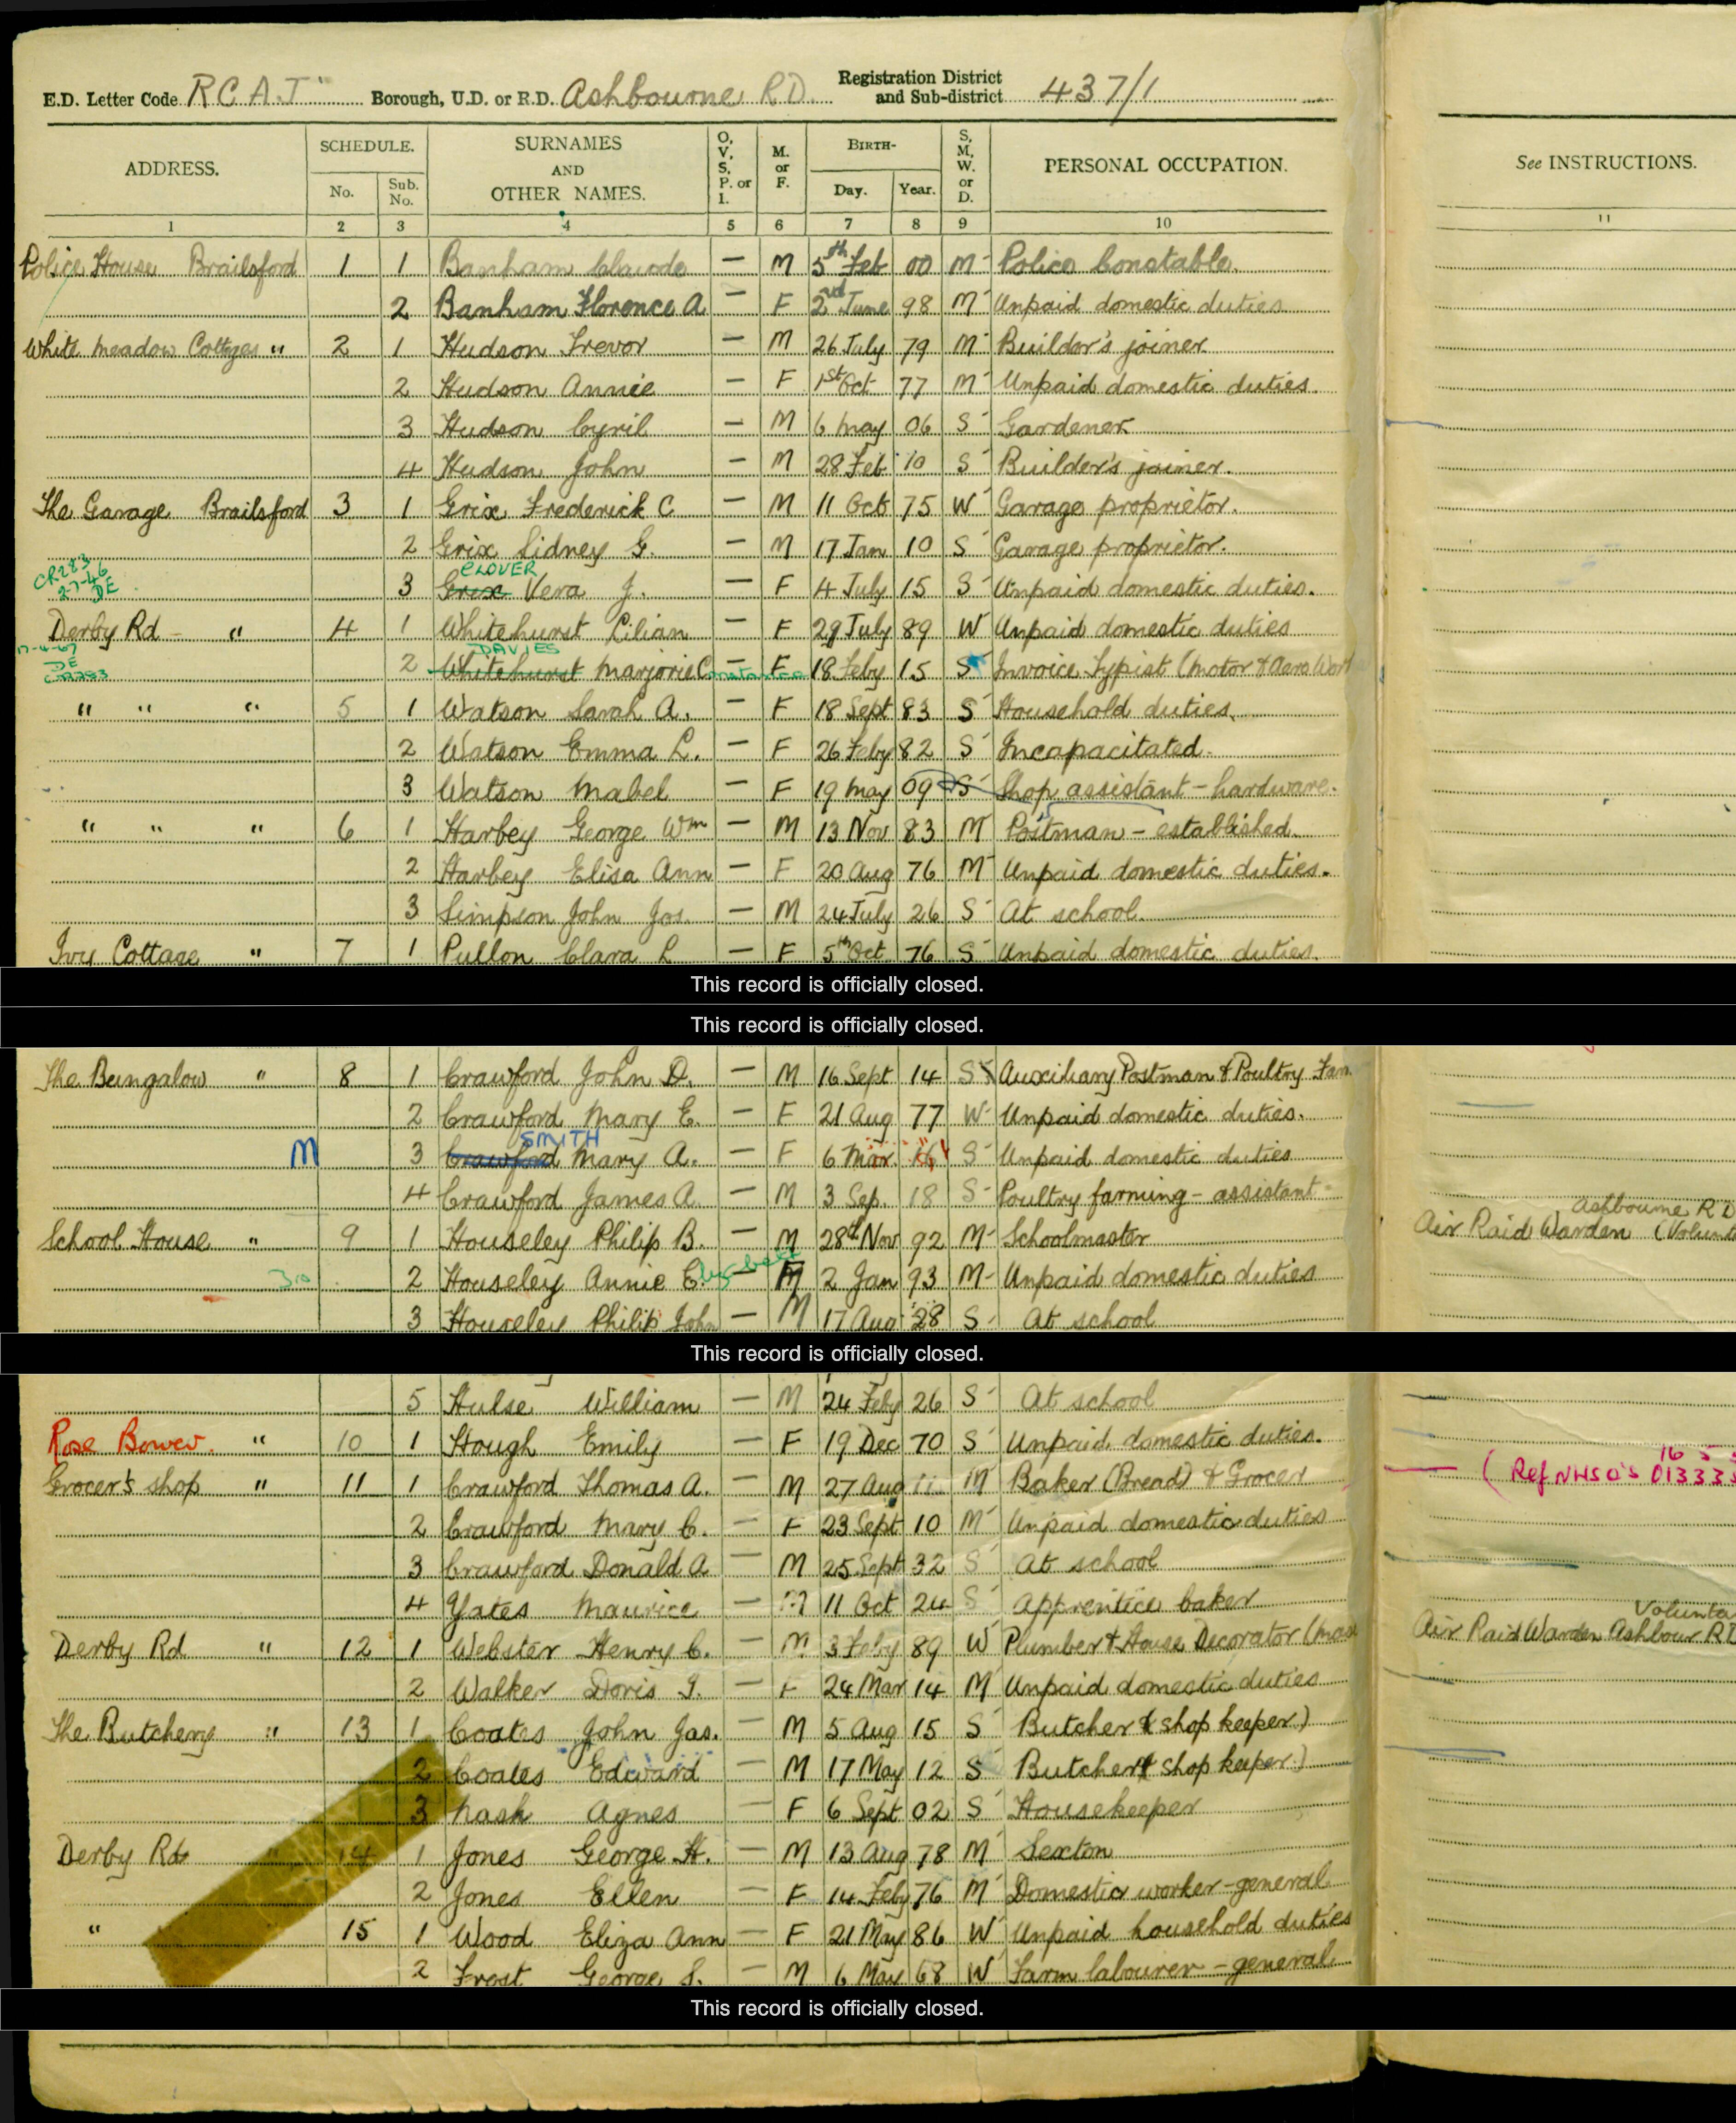 E.D. Letter Code R C A J Borough, U.D. or R.D. Ashbourne R D Registration District and Sub-district 437/1
ADDRESS. SCHEDULE. No. Sub. No. SURNAMES AND OTHER NAMES. O, V, S, P. or I. M. or F. BIRTH- Day. Year. S, M, W. or D. PERSONAL OCCUPATION. See INSTRUCTIONS.
1 2 3 4 5 6 7 8 9 10 11
Police House Brailsford 1 1 Banham Claude — M 5th Feb 00 M Police Constable.
2 Banham Florence A — F 2nd June 98 M Unpaid domestic duties
White meadow Cottages " 2 1 Hudson Trevor — M 26 July 79 M Builder's joiner
2 Hudson Annie — F 1st Oct 77 M Unpaid domestic duties.
3 Hudson Cyril — M 6 May 06 S Gardener
4 Hudson John — M 28 Feb 10 S Builder's joiner.
The Garage Brailsford 3 1 Grix Frederick C — M 11 Oct 75 W Garage proprietor.
2 Grix Sidney G. — M 17 Jan 10 S Garage proprietor.
CLOVER
CR283 27-46 DE 3 Grix Vera J. — F 4 July 15 S Unpaid domestic duties.
Derby Rd " 4 1 Whitehurst Lilian — F 29 July 89 W Unpaid domestic duties
DAVIES
DE 2 Whitehurst Marjorie C — F 18 Feby 15 S Invoice Typist (Motor & Aero
" " " 5 1 Watson Sarah A. — F 18 Sept 83 S Household duties.
2 Watson Emma L. — F 26 Feby 82 S Incapacitated.
3 Watson Mabel — F 19 May 09 S Shop assistant - hardware.
" " " 6 1 Harbey George Wm — M 13 Nov 83 M Postman - established.
2 Harbey Elisa Ann — F 20 Aug 76 M Unpaid domestic duties.
3 Simpson John Jas. — M 24 July 26 S At school.
Ivy Cottage " 7 1 Pullon Clara L — F 5th Oct 76 S Unpaid domestic duties.
This record is officially closed.
This record is officially closed.
The Bungalow " 8 1 Crawford John D. — M 16 Sept 14 S Auxiliary Postman & Poultry Farm
2 Crawford Mary E. — F 21 Aug 77 W Unpaid domestic duties.
SMITH
M 3 Crawford Mary A. — F 6 Mar. 16 S Unpaid domestic duties
4 Crawford James A. — M 3 Sep. 18 S Poultry farming - assistant
School House " 9 1 Houseley Philip B. — M 28th Nov 92 M Schoolmaster Air Raid Warden Ashbourne R D
2 Houseley Annie E. — 2 Jan 93 M Unpaid domestic duties
3 Houseley Philip John — M 17 Aug 28 S At school
This record is officially closed.
5 Hulse William — M 24 Feby 26 S At school
Rose Bower. " 10 1 Hough Emily — F 19 Dec 70 S Unpaid domestic duties.
Grocer's shop " 11 1 Crawford Thomas A. — M 27 Aug 11 M Baker (Bread) & Grocer (Ref NHSO's 013333
2 Crawford Mary C. — F 23 Sept 10 M Unpaid domestic duties
3 Crawford Donald A — M 25 Sept 32 S At school
4 Yates Maurice — M 11 Oct 24 S Apprentice baker
Derby Rd " 12 1 Webster Henry C. — M 3 Feby 89 W Plumber & House Decorator Air Raid Warden Ashbour RD
2 Walker Doris J. — F 24 Mar 14 M Unpaid domestic duties
The Butchery " 13 1 Coates John Jas. — M 5 Aug 15 S Butcher & shop keeper)
2 Coates Edward — M 17 May 12 S Butcher & shop keeper.)
3 Nash Agnes — F 6 Sept 02 S Housekeeper
Derby Rd " 14 1 Jones George H. — M 13 Aug 78 M Sexton
2 Jones Ellen — F 14 Feby 76 M Domestic worker - general
" 15 1 Wood Eliza Ann — F 21 May 86 W Unpaid household duties
2 Frost George S. — M 6 May 68 W Farm labourer - general
This record is officially closed.